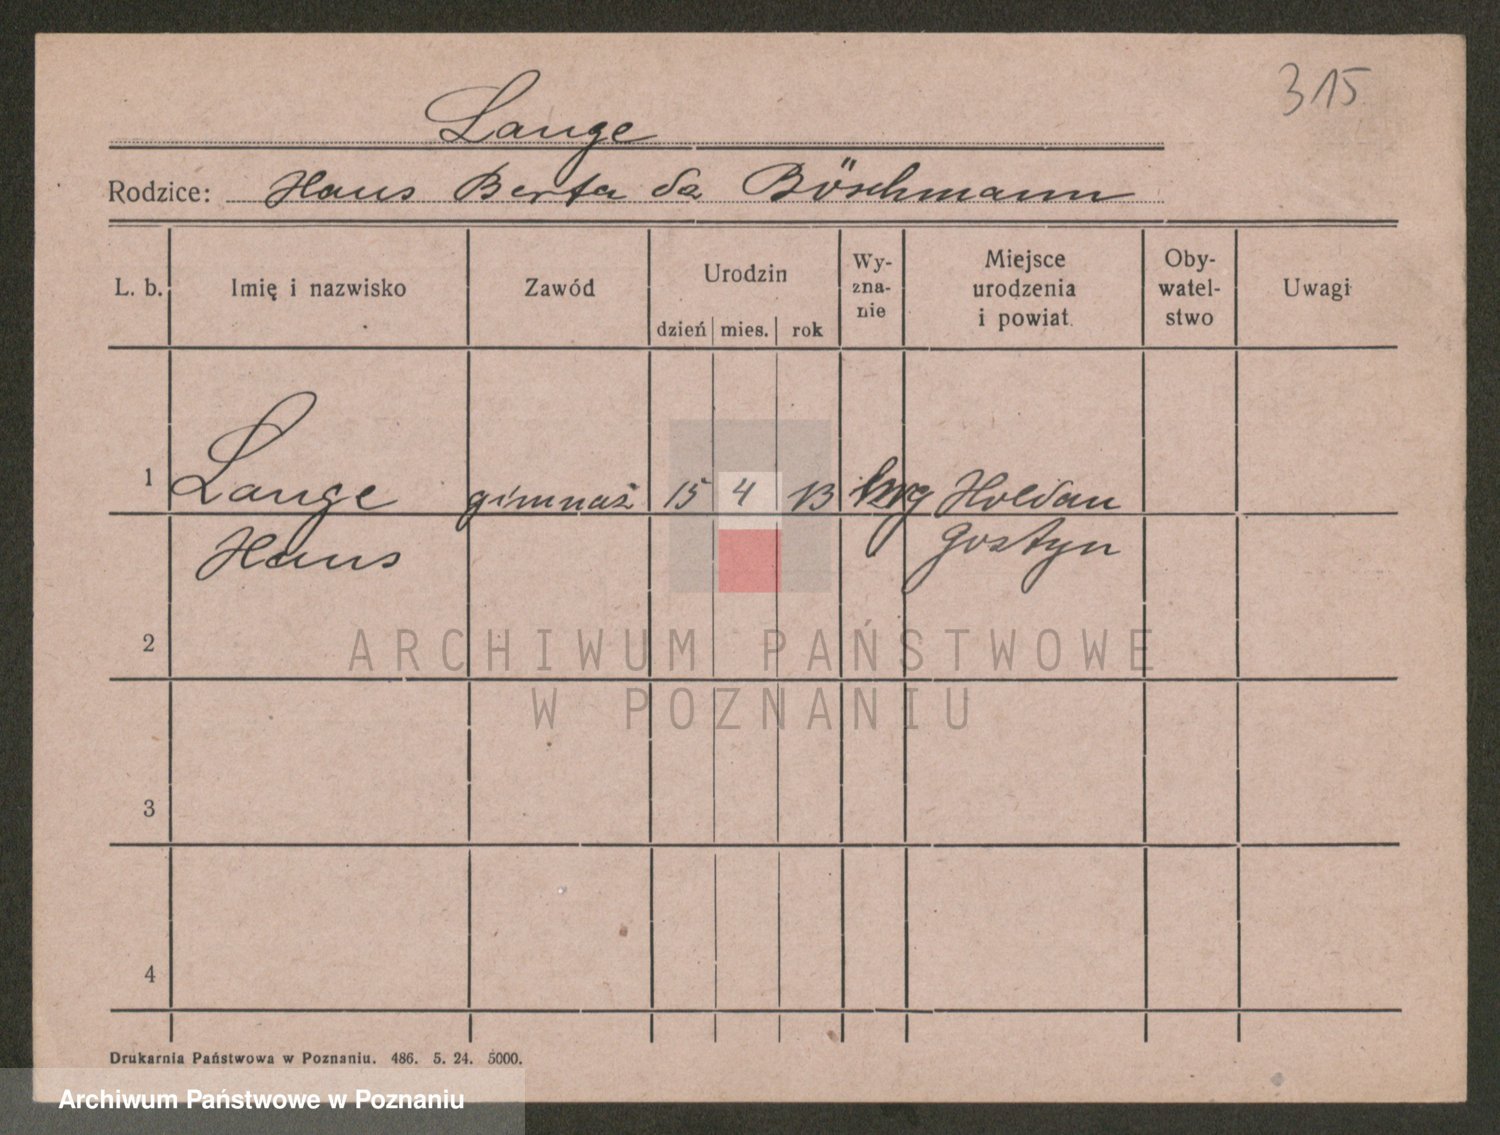 315
Lange
Rodzice: Hans Berta da Böschmann
L. b. Imię i nazwisko Zawód Urodzin dzień mies. rok Wy-zna-nie Miejsce urodzenia i powiat Oby-watel-stwo Uwagi
1 Lange gimnaz 15 4 13 Holdau
Hans Gostyn
2
ARCHIWUM PAŃSTWOWE
W POZNANIU
3
4
Drukarnia Państwowa w Poznaniu. 486. 5. 24. 5000.
Archiwum Państwowe w Poznaniu